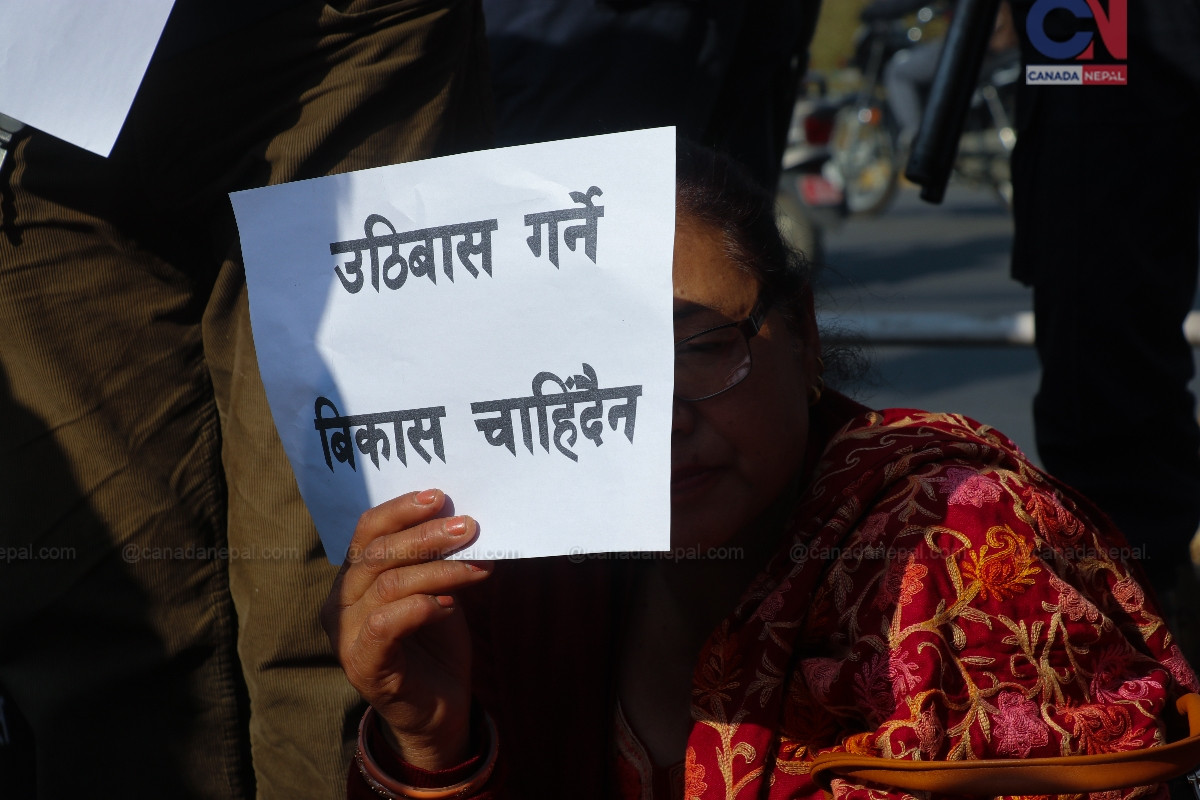 CN
CANADA NEPAL
उठिबास गर्ने
बिकास चाहिंदैन
epal.com @canadanepal.com @canadanepal.com @canadanepal.com @canadanepal.com